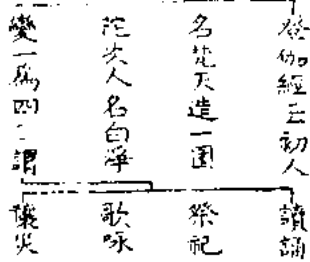 登伽經云初人
名梵天造一圍
陀次人名白淨
變一爲四〻謂
讀誦
祭祀
歌咏
禳災